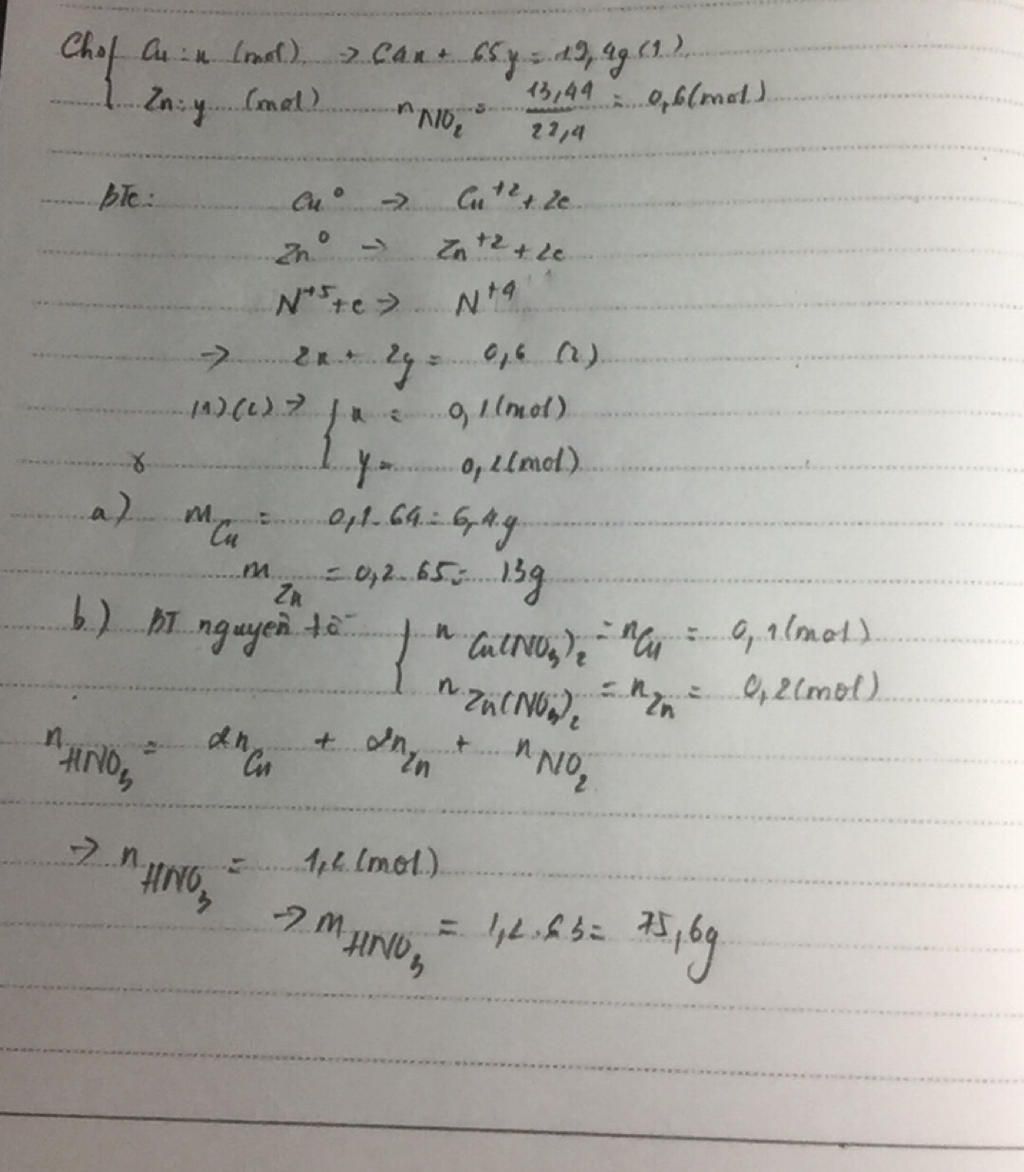 Cho { Cu : x (mol) → 64x + 65y = 19,4g (1)
Zn : y (mol) nNO₂ = 13,44/22,4 = 0,6 (mol)
BTe: Cu⁰ → Cu⁺² + 2e
Zn⁰ → Zn⁺² + 2e
N⁺⁵ + e → N⁺⁴
→ 2x + 2y = 0,6 (2)
(1)(2) → { x = 0,1 (mol)
y = 0,2 (mol)
a) mCu = 0,1.64 = 6,4g
mZn = 0,2.65 = 13g
b) BT nguyên tố { nCu(NO₃)₂ = nCu = 0,1 (mol)
nZn(NO₃)₂ = nZn = 0,2 (mol)
nHNO₃ = 2nCu + 2nZn + nNO₂
→ nHNO₃ = 1,2 (mol)
→ mHNO₃ = 1,2.63 = 75,6g